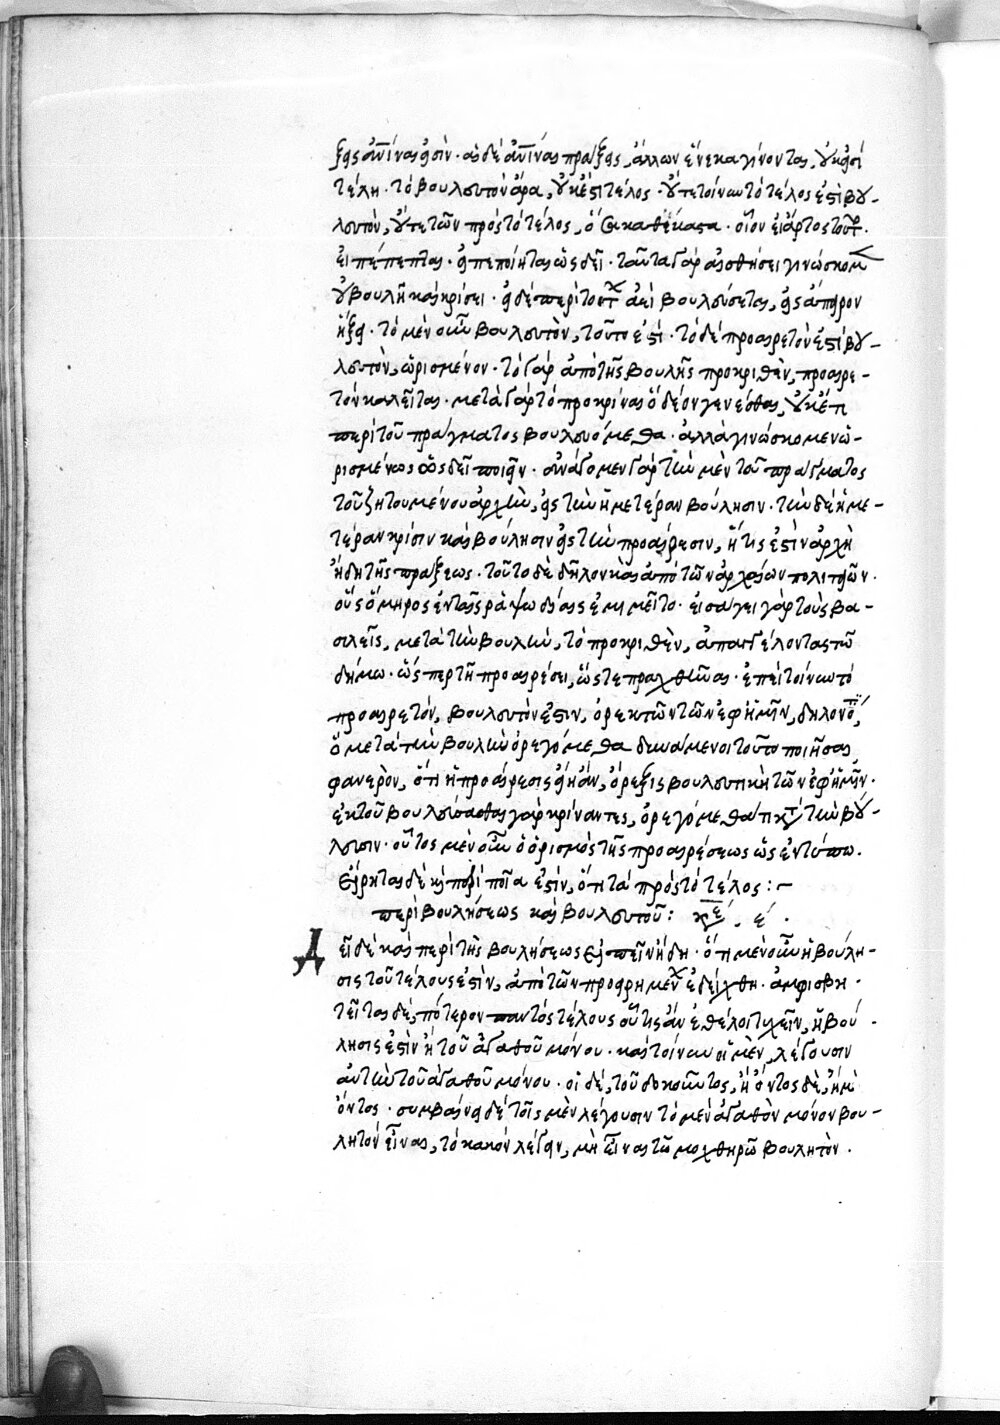 ξεις ἀντινάς εἰσίν· αἱ δὲ ἀντινάς πράξεις, ἄλλων ἕνεκα γίνονται, οὐκ εἰσὶ
τέλη· τὸ βουλευτὸν ἄρα, οὐκ ἔστι τέλος· οὔτε τοίνυν τὸ τέλος ἐστὶ βου-
λευτὸν, οὔτε τῶν πρὸς τὸ τέλος, ὅσα καθέκαστα· οἷον εἰ ἄρτος τοῦτο.
εἰ πέπεπται· ἢ πεποίηται ὡς δεῖ· ταῦτα γὰρ αἰσθήσει γινώσκομεν
οὐ βουλῇ καὶ κρίσει· εἰ δὲ περὶ τούτων ἀεὶ βουλεύσεται, εἰς ἄπειρον
ἥξει· τὸ μὲν οὖν βουλευτὸν, τοῦτο ἐστί· τὸ δὲ προαιρετὸν ἐστὶ βου-
λευτὸν, ὡρισμένον· τὸ γὰρ ἀπὸ τῆς βουλῆς προκριθὲν, προαιρε-
τὸν καλεῖται· μετὰ γὰρ τὸ προκρίναι ὃ δέον γενέσθαι, οὐκέτι
περὶ τοῦ πράγματος βουλευόμεθα· ἀλλὰ γινώσκομεν ὡ-
ρισμένως ὡς δεῖ ποιεῖν· ἀνάγομεν γὰρ τὴν μὲν τοῦ πράγματος
τοῦ ζητουμένου ἀρχὴν, εἰς τὴν ἡμετέραν βούλησιν· τὴν δὲ ἡμε-
τέραν κρίσιν καὶ βούλησιν εἰς τὴν προαίρεσιν, ἥτις ἐστὶν ἀρχὴ
ἤδη τῆς πράξεως· τοῦτο δὲ δῆλον καὶ ἀπὸ τῶν ἀρχαίων πολιτειῶν·
οὓς ὅμηρος ἐν ταῖς ῥαψωδίαις ἐμιμεῖτο· εἰσάγει γὰρ τοὺς βα-
σιλεῖς, μετὰ τὴν βουλὴν, τὸ προκριθὲν, ἀπαγγέλοντας τῶ
δήμω· ὥσπερ τῇ προαιρέσει, ὥστε πραχθῆναι· ἐπεὶ τοίνυν τὸ
προαιρετόν, βουλευτόν ἐστιν, ὀρεκτῶν τῶν ἐφ' ἡμῖν, δηλονότι,
ὃ μετὰ τὴν βουλὴν ὀρεγόμεθα δυνάμενοι τοῦτο ποιῆσαι
φανερὸν, ὅτι ἡ προαίρεσις εἴη ἂν, ὄρεξις βουλευτικὴ τῶν ἐφ' ἡμῖν·
ἐκ τοῦ βουλεύσασθαι γὰρ κρίναντες, ὀρεγόμεθά τι κατὰ τὴν βού-
λευσιν· οὗτος μὲν οὖν ὁ ὁρισμὸς τῆς προαιρέσεως ὡς ἐν τύπω.
εἴρηται δὲ καὶ περὶ ποῖα ἐστὶν, ὅτι τὰ πρὸς τὸ τέλος:~
περὶ βουλήσεως καὶ βουλευτοῦ: κε΄. ε΄.
Δεῖ δὲ καὶ περὶ τῆς βουλήσεως εἰπεῖν ἤδη· ὅτι μὲν οὖν ἡ βούλη-
σις τοῦ τέλους ἐστὶν, ἀπὸ τῶν προειρημένων ἐδείχθη· ἀμφισβη-
τεῖται δὲ, πότερον παντὸς τέλους οὗτις ἂν ἐθέλοι τυχεῖν, ἡ βού-
λησις ἐστὶν ἢ τοῦ ἀγαθοῦ μόνου· καὶ τοίνυν οἱ μὲν, λέγουσιν
αὐτὴν τοῦ ἀγαθοῦ μόνου· οἱ δὲ, τοῦ δοκοῦντος, ἢ ὄντος δὲ, ἢ μὴ
ὄντος· συμβαίνει δὲ τοῖς μὲν λέγουσιν τὸ μὲν ἀγαθὸν μόνον βου-
λητὸν εἶναι, τὸ κακὸν λέγειν, μὴ εἶναι τῶ μοχθηρῶ βουλητὸν.